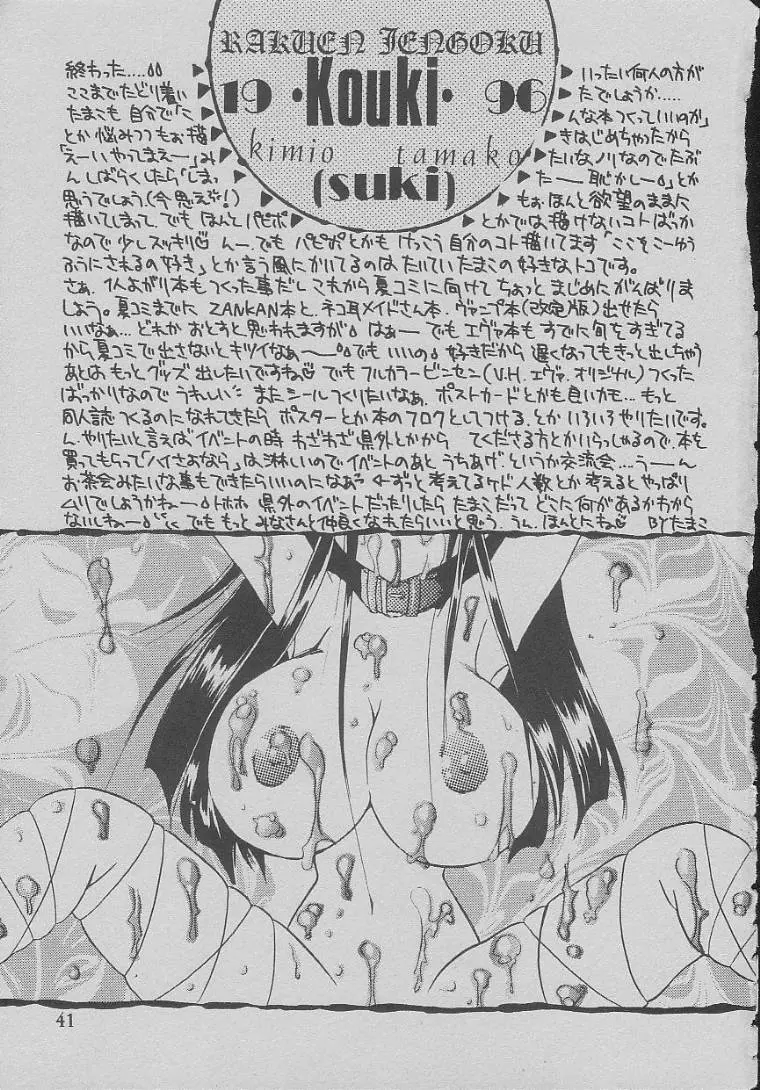 RAKUEN JENGOKU
19 ・Kouki・ 96
kimio tamako
(suki)
終わった....▶ ▶いったい何人の方が
ここまでたどり着い▶ ▶たでしょうか.....
たまこも自分で「こ▶ ▶んな本つくっていいのか」
とか悩みつつもぉ描▶ ▶きはじめちゃったから
「えーいやってまえー」み▶ ▶たいなノリなのでたぶ
んしばらくしたら「しまっ▶ ▶たー恥かしー」とか
思うでしょう(今思えゞ!)▶ ▶もぉほんと欲望のままに
描いてしまって、でもほんとパピポ▶ ▶とかでは描けないコトばっか
なので少しスッキリ♡ んー、でも パピポとかも けっこう自分のコト描いてます「ここをこーゆう
ふうにされるの好き」とか言う風にかいてるのは たいていたまこの好きなトコです。
さぁ、1人よがり本もつくった事だし これから夏コミに向けて ちょっと まじめにがんばりま
しょう。夏コミまでに ZANKAN本と、ネコ耳メイドさん本、ヴァンプ本(改定版)出せたら
いいなぁ... どれか おとすと思われますが はぁー でも エヴァ本も すでに旬をすぎてる
から夏コミで出さないとキツイなぁー でも いいの 好きだから 遅くなってもきっと出しちゃう
あとは もっと グッズ 出したいですね♡ でも フルカラービンセン(V.H. エヴァ. オリジナル)つくった
ばっかりなので うれしい また シールつくりたいなぁ、ポストカードとかも良いかも... もっと
同人誌つくるのになれてきたら ポスターとか本のフロクとしてつける、とか いろいろやりたいです。
ん、やりたいと言えば イベントの時 わざわざ 県外とかから てくださる方とかいらっしゃるので、本を
買ってもらって「ハイさよおなら」は、淋しいので イベントのあと うちあげ、というか交流会....うーん
お茶会みたいな事もできたらいいのになぁ ←ずっと考えてるケド 人数とか考えるとやっぱり
ムリでしょうかねー トホホ 県外のイベントだったりしたら たまこだって どこに何があるかわから
ないしねー でも もっと みなさんと仲良くなれたらいいと思う. うん. ほんとにね♡ BYたまこ
41